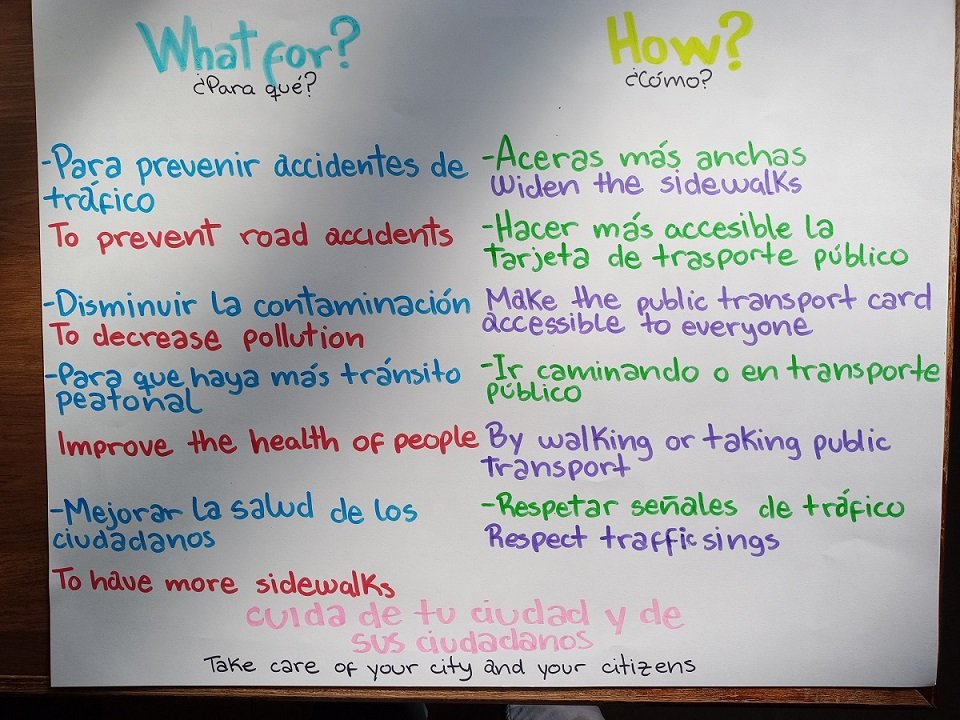 What for?
¿Para qué?
-Para prevenir accidentes de
tráfico
To prevent road accidents
-Disminuir la contaminación
To decrease pollution
-Para que haya más tránsito
peatonal
Improve the health of people
-Mejorar la salud de los
ciudadanos
To have more sidewalks
How?
¿Cómo?
-Aceras más anchas
Widen the sidewalks
-Hacer más accesible la
tarjeta de trasporte público
Make the public transport card
accessible to everyone
-Ir caminando o en transporte
público
By walking or taking public
transport
-Respetar señales de tráfico
Respect traffic sings
cuida de tu ciudad y de
sus ciudadanos
Take care of your city and your citizens